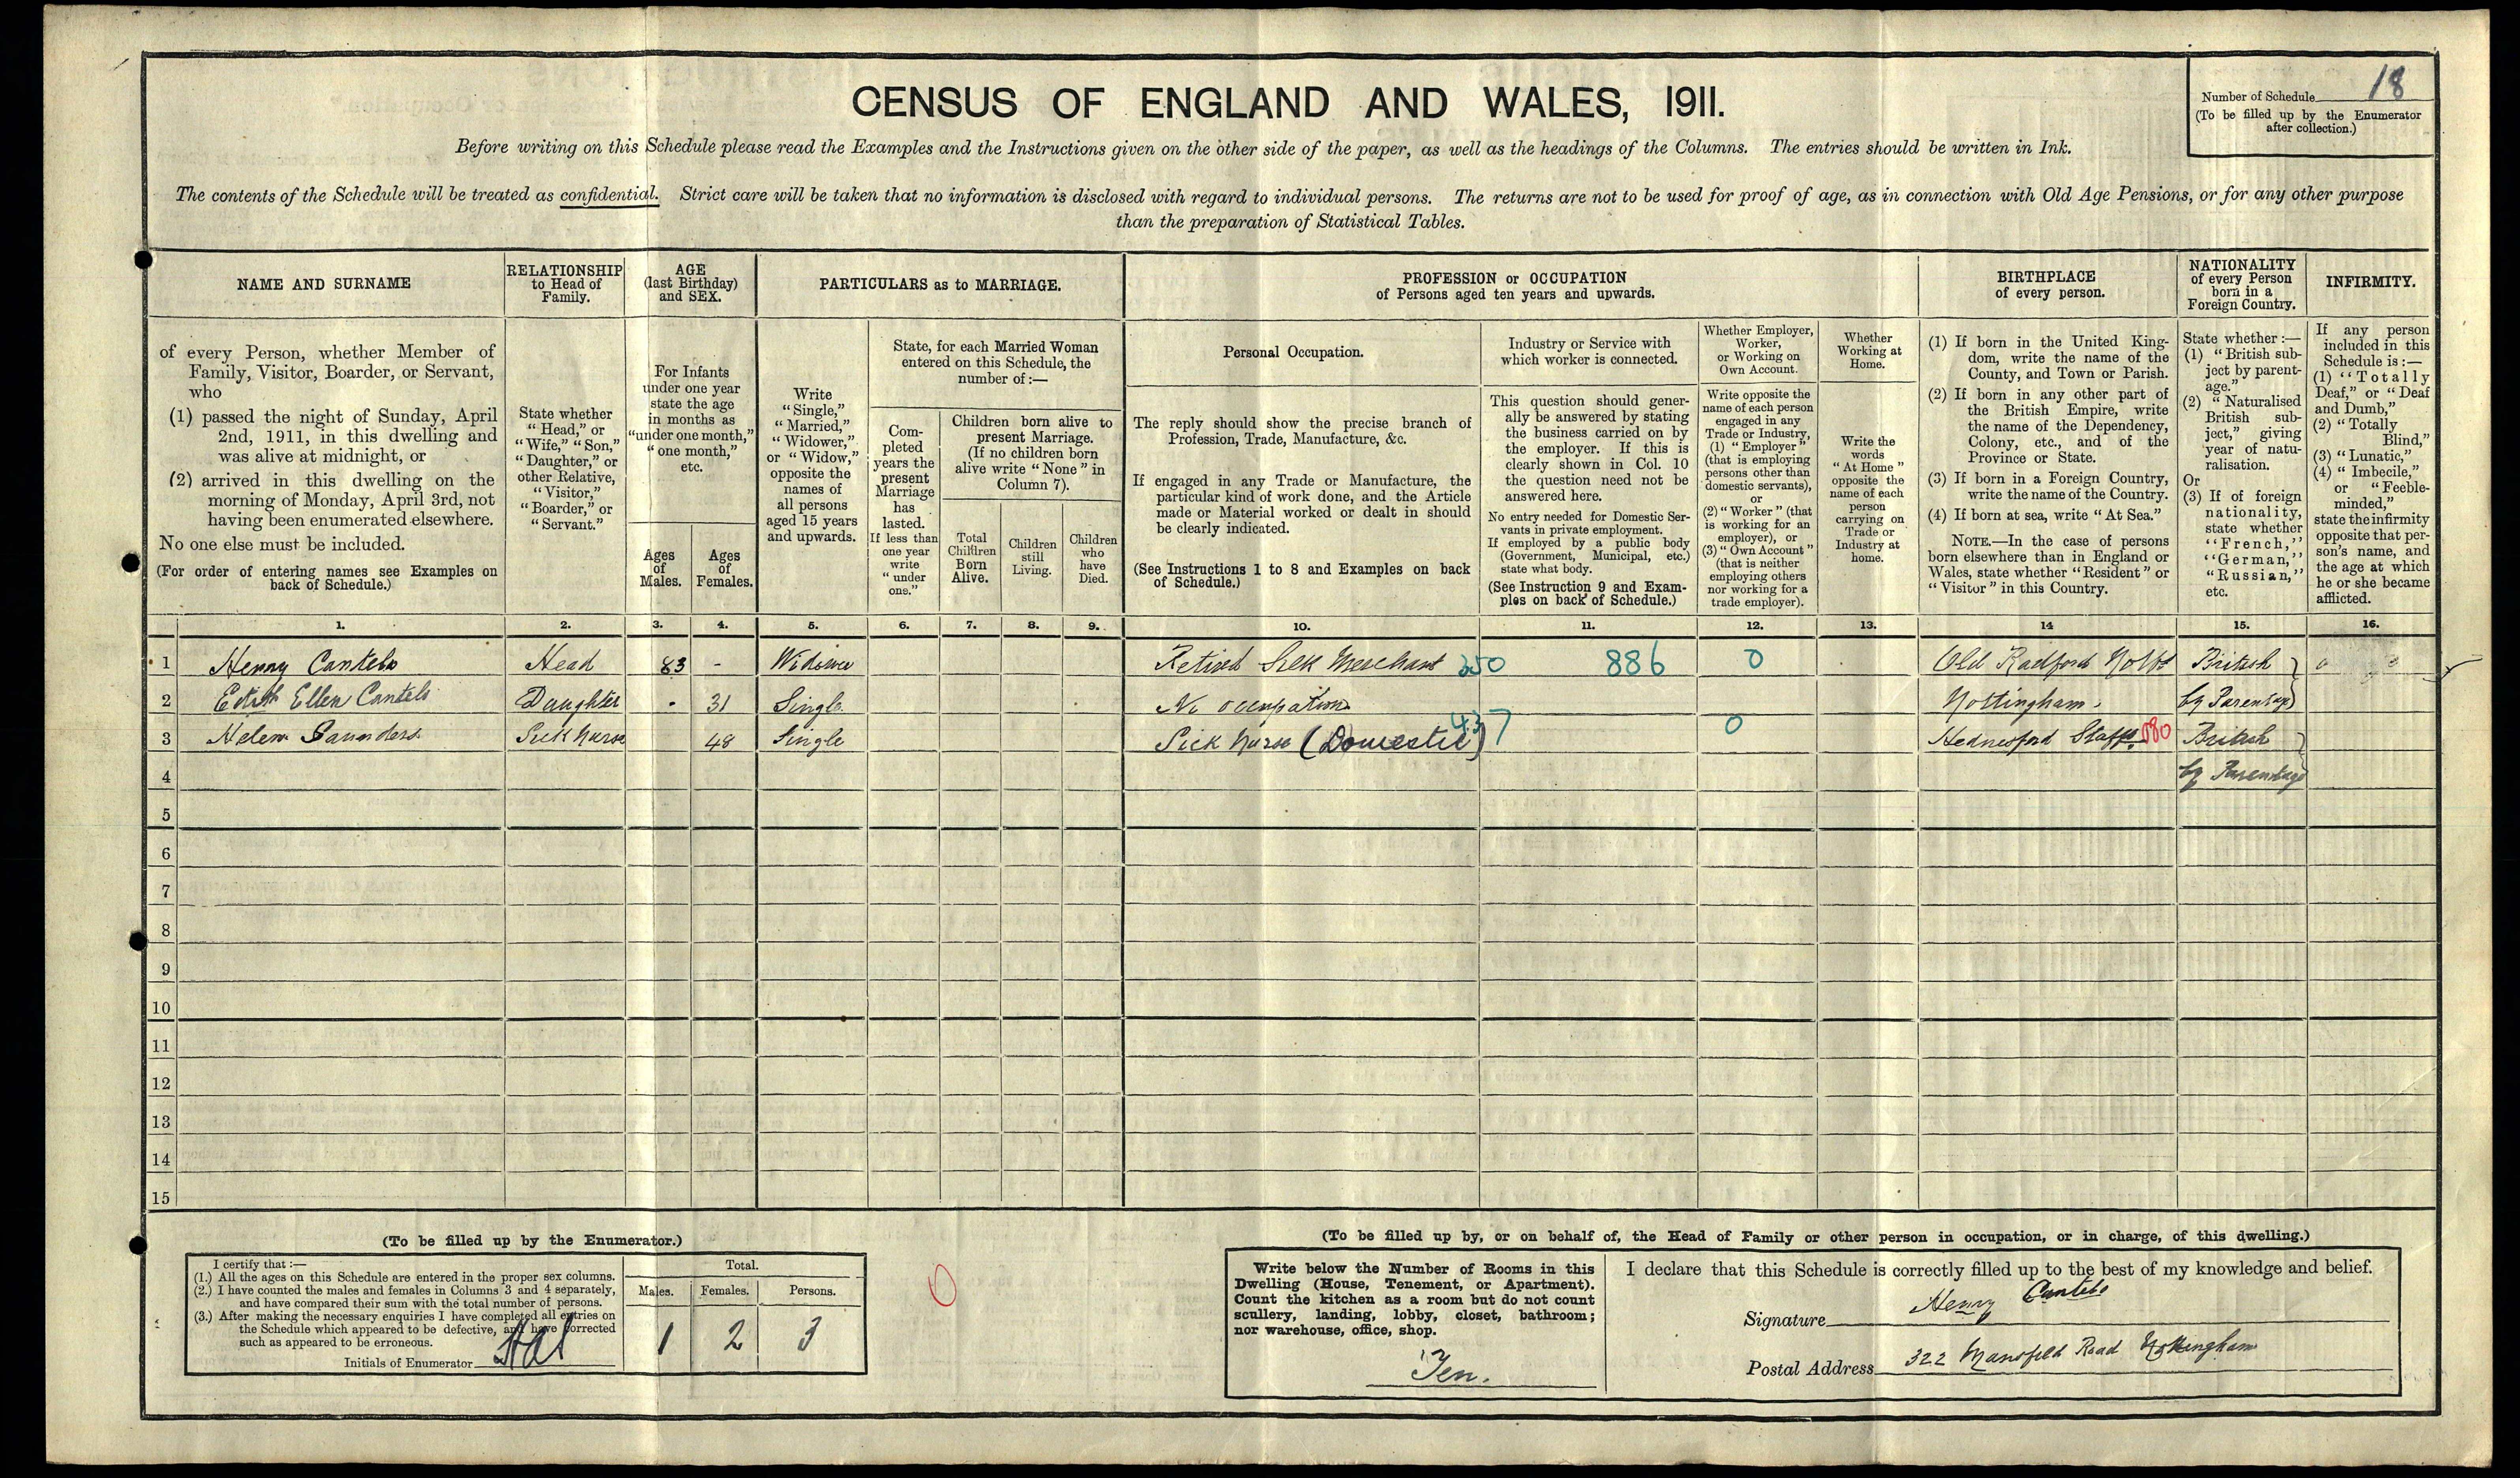 CENSUS OF ENGLAND AND WALES, 1911.
Number of Schedule 18
(To be filled up by the Enumerator
after collection.)
Before writing on this Schedule please read the Examples and the Instructions given on the other side of the paper, as well as the headings of the Columns. The entries should be written in Ink.
The contents of the Schedule will be treated as confidential. Strict care will be taken that no information is disclosed with regard to individual persons. The returns are not to be used for proof of age, as in connection with Old Age Pensions, or for any other purpose
than the preparation of Statistical Tables.
NAME AND SURNAME
of every Person, whether Member of
Family, Visitor, Boarder, or Servant,
who
(1) passed the night of Sunday, April
2nd, 1911, in this dwelling and
was alive at midnight, or
(2) arrived in this dwelling on the
morning of Monday, April 3rd, not
having been enumerated elsewhere.
No one else must be included.
(For order of entering names see Examples on
back of Schedule.)
RELATIONSHIP
to Head of
Family.
State whether
"Head," or
"Wife," "Son,"
"Daughter," or
other Relative,
"Visitor,"
"Boarder," or
"Servant."
AGE
(last Birthday)
and SEX.
For Infants
under one year
state the age
in months as
"under one month,"
"one month,"
etc.
Ages
of
Males.
Ages
of
Females.
PARTICULARS as to MARRIAGE.
Write
"Single,"
"Married,"
"Widower,"
or "Widow,"
opposite the
names of
all persons
aged 15 years
and upwards.
State, for each Married Woman
entered on this Schedule, the
number of:—
Com-
pleted
years the
present
Marriage
has
lasted.
If less than
one year
write
"under
one."
Children born alive to
present Marriage.
(If no children born
alive write "None" in
Column 7).
Total
Children
Born
Alive.
Children
still
Living.
Children
who
have
Died.
PROFESSION or OCCUPATION
of Persons aged ten years and upwards.
Personal Occupation.
The reply should show the precise branch of
Profession, Trade, Manufacture, &c.
If engaged in any Trade or Manufacture, the
particular kind of work done, and the Article
made or Material worked or dealt in should
be clearly indicated.
(See Instructions 1 to 8 and Examples on back
of Schedule.)
Industry or Service with
which worker is connected.
This question should gener-
ally be answered by stating
the business carried on by
the employer. If this is
clearly shown in Col. 10
the question need not be
answered here.
No entry needed for Domestic Ser-
vants in private employment.
If employed by a public body
(Government, Municipal, etc.)
state what body.
(See Instruction 9 and Exam-
ples on back of Schedule.)
Whether Employer,
Worker,
or Working on
Own Account.
Write opposite the
name of each person
engaged in any
Trade or Industry,
(1) "Employer"
(that is employing
persons other than
domestic servants),
or
(2) "Worker" (that
is working for an
employer), or
(3) "Own Account"
(that is neither
employing others
nor working for a
trade employer).
Whether
Working at
Home.
Write the
words
"At Home"
opposite the
name of each
person
carrying on
Trade or
Industry at
home.
BIRTHPLACE
of every person.
(1) If born in the United King-
dom, write the name of the
County, and Town or Parish.
(2) If born in any other part of
the British Empire, write
the name of the Dependency,
Colony, etc., and of the
Province or State.
(3) If born in a Foreign Country,
write the name of the Country.
(4) If born at sea, write "At Sea."
NOTE.—In the case of persons
born elsewhere than in England or
Wales, state whether "Resident" or
"Visitor" in this Country.
NATIONALITY
of every Person
born in a
Foreign Country.
State whether:—
(1) "British sub-
ject by parent-
age."
(2) "Naturalised
British sub-
ject," giving
year of natu-
ralisation.
Or
(3) If of foreign
nationality,
state whether
"French,"
"German,"
"Russian,"
etc.
INFIRMITY.
If any person
included in this
Schedule is:—
(1) "Totally
Deaf," or "Deaf
and Dumb,"
(2) "Totally
Blind,"
(3) "Lunatic,"
(4) "Imbecile,"
or "Feeble-
minded,"
state the infirmity
opposite that per-
son's name, and
the age at which
he or she became
afflicted.
1. 2. 3. 4. 5. 6. 7. 8. 9. 10. 11. 12. 13. 14 15. 16.
1 Henry Cantelo Head 83 - Widower Retired Silk Merchant 350 886 0 Old Radford Notts British
2 Edith Ellen Cantelo Daughter 31 Single No occupation Nottingham. by Parentage
3 Helen Saunders Sick Nurse 48 Single Sick Nurse (Domestic) 437 0 Hednesford Staffs. 580 British
4 by Parentage
5
6
7
8
9
10
11
12
13
14
15
(To be filled up by the Enumerator.)
I certify that:—
(1.) All the ages on this Schedule are entered in the proper sex columns.
(2.) I have counted the males and females in Columns 3 and 4 separately,
and have compared their sum with the total number of persons.
(3.) After making the necessary enquiries I have completed all entries on
the Schedule which appeared to be defective, and have corrected
such as appeared to be erroneous.
Initials of Enumerator
Total.
Males. Females. Persons.
1 2 3
0
(To be filled up by, or on behalf of, the Head of Family or other person in occupation, or in charge, of this dwelling.)
Write below the Number of Rooms in this
Dwelling (House, Tenement, or Apartment).
Count the kitchen as a room but do not count
scullery, landing, lobby, closet, bathroom;
nor warehouse, office, shop.
Ten.
I declare that this Schedule is correctly filled up to the best of my knowledge and belief.
Signature Henry Cantelo
Postal Address 322 Mansfield Road Nottingham